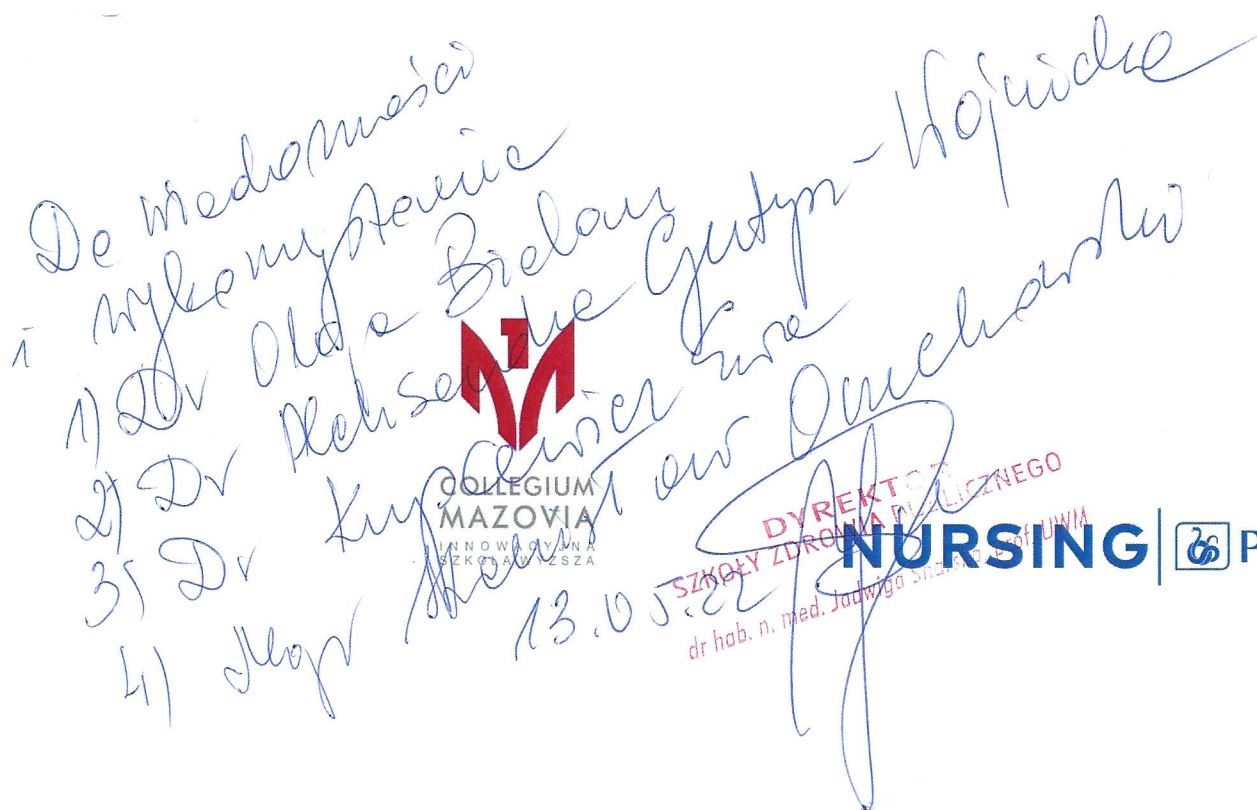 Do wiadomości
i wykorzystania
1) Dr Olga Bielan
2) Dr Aleksandra Gutysz-Wojnicka
3) Dr Kupcewicz Ewa
4) Mgr Stanisław Omucharski
13.05.22
COLLEGIUM
MAZOVIA
INNOWACYJNA
SZKOŁA WYŻSZA
DYREKTOR
SZKOŁY ZDROWIA PUBLICZNEGO
dr hab. n. med. Jadwiga prof. UWM
NURSING P